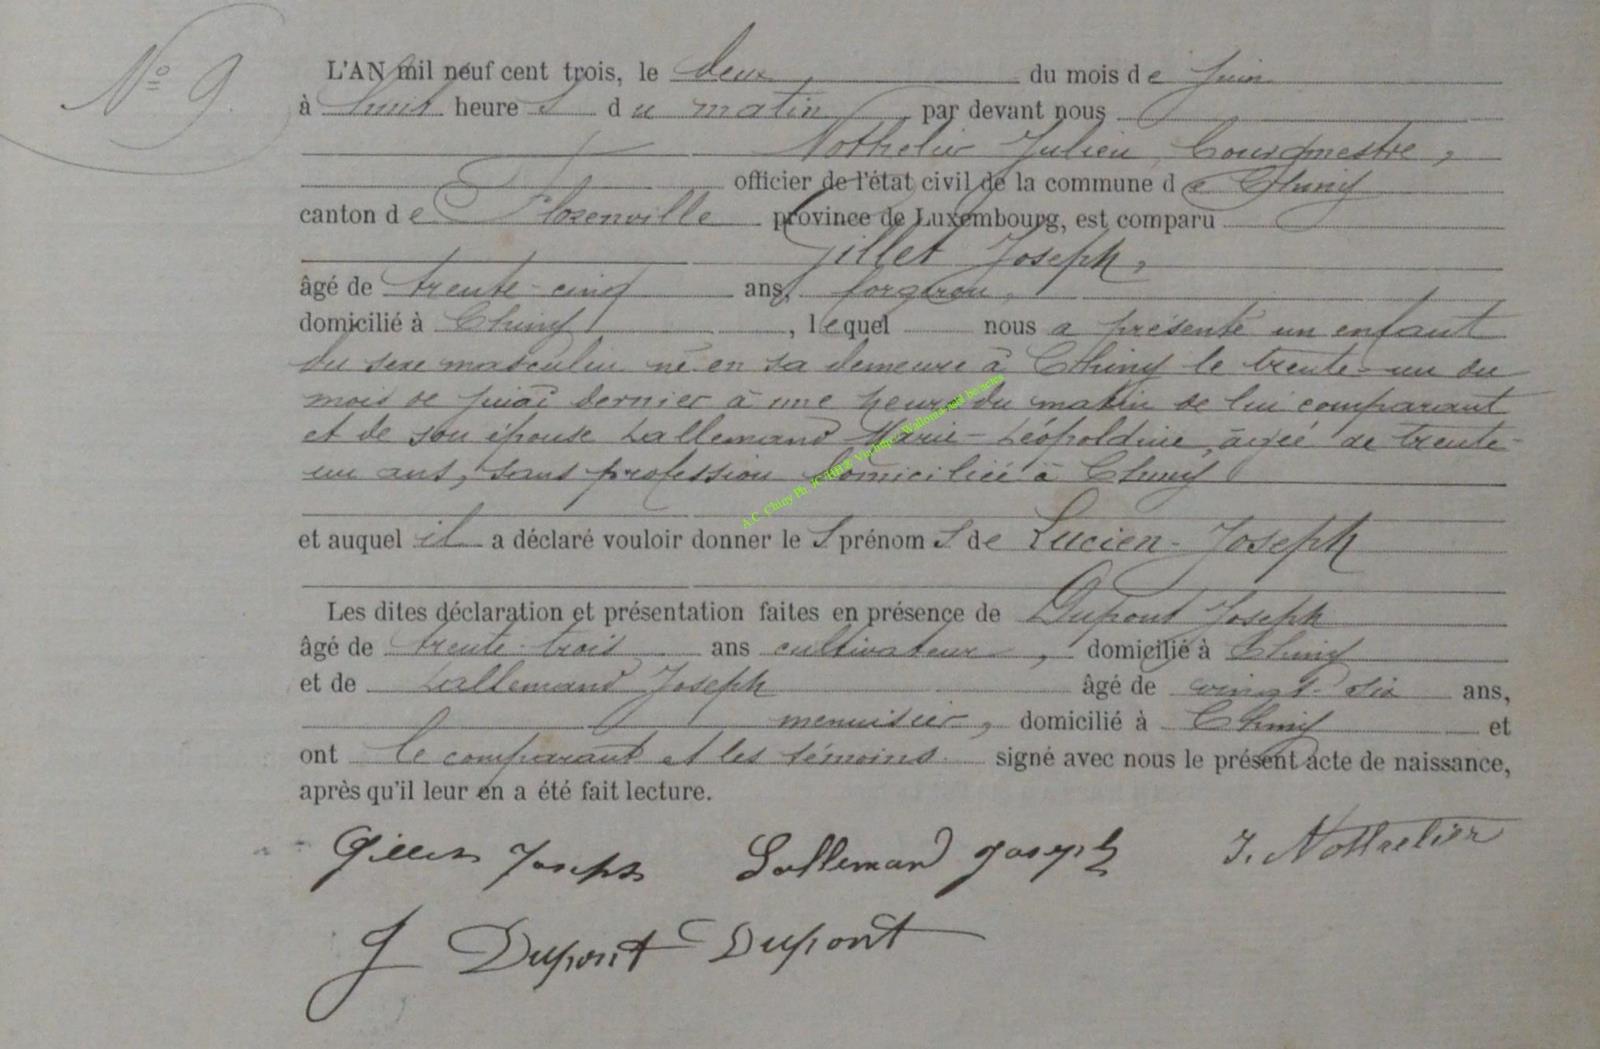 Nº 9
L'AN mil neuf cent trois, le deux du mois de juin
à huit heures du matin par devant nous
Nothelier Julien, bourgmestre,
officier de l'état civil de la commune de Chiny
canton de Florenville province de Luxembourg, est comparu
Gillet Joseph,
âgé de trente-cinq ans, forgeron,
domicilié à Chiny, lequel nous a présenté un enfant
du sexe masculin né en sa demeure à Chiny le trente-un du
mois de mai dernier à une heure du matin de lui comparant
et de son épouse Lallemand Marie-Léopoldine, âgée de trente-
un ans, sans profession domiciliée à Chiny
et auquel il a déclaré vouloir donner les prénoms de Lucien-Joseph
Les dites déclaration et présentation faites en présence de Dupont Joseph
âgé de trente-trois ans cultivateur, domicilié à Chiny
et de Lallemand Joseph âgé de vingt-six ans,
menuisier, domicilié à Chiny et
ont le comparant et les témoins signé avec nous le présent acte de naissance,
après qu'il leur en a été fait lecture.
Gillet Joseph Lallemand Joseph J. Nothelier
J Dupont Dupont
A.C. Chiny Ph. JC/HB